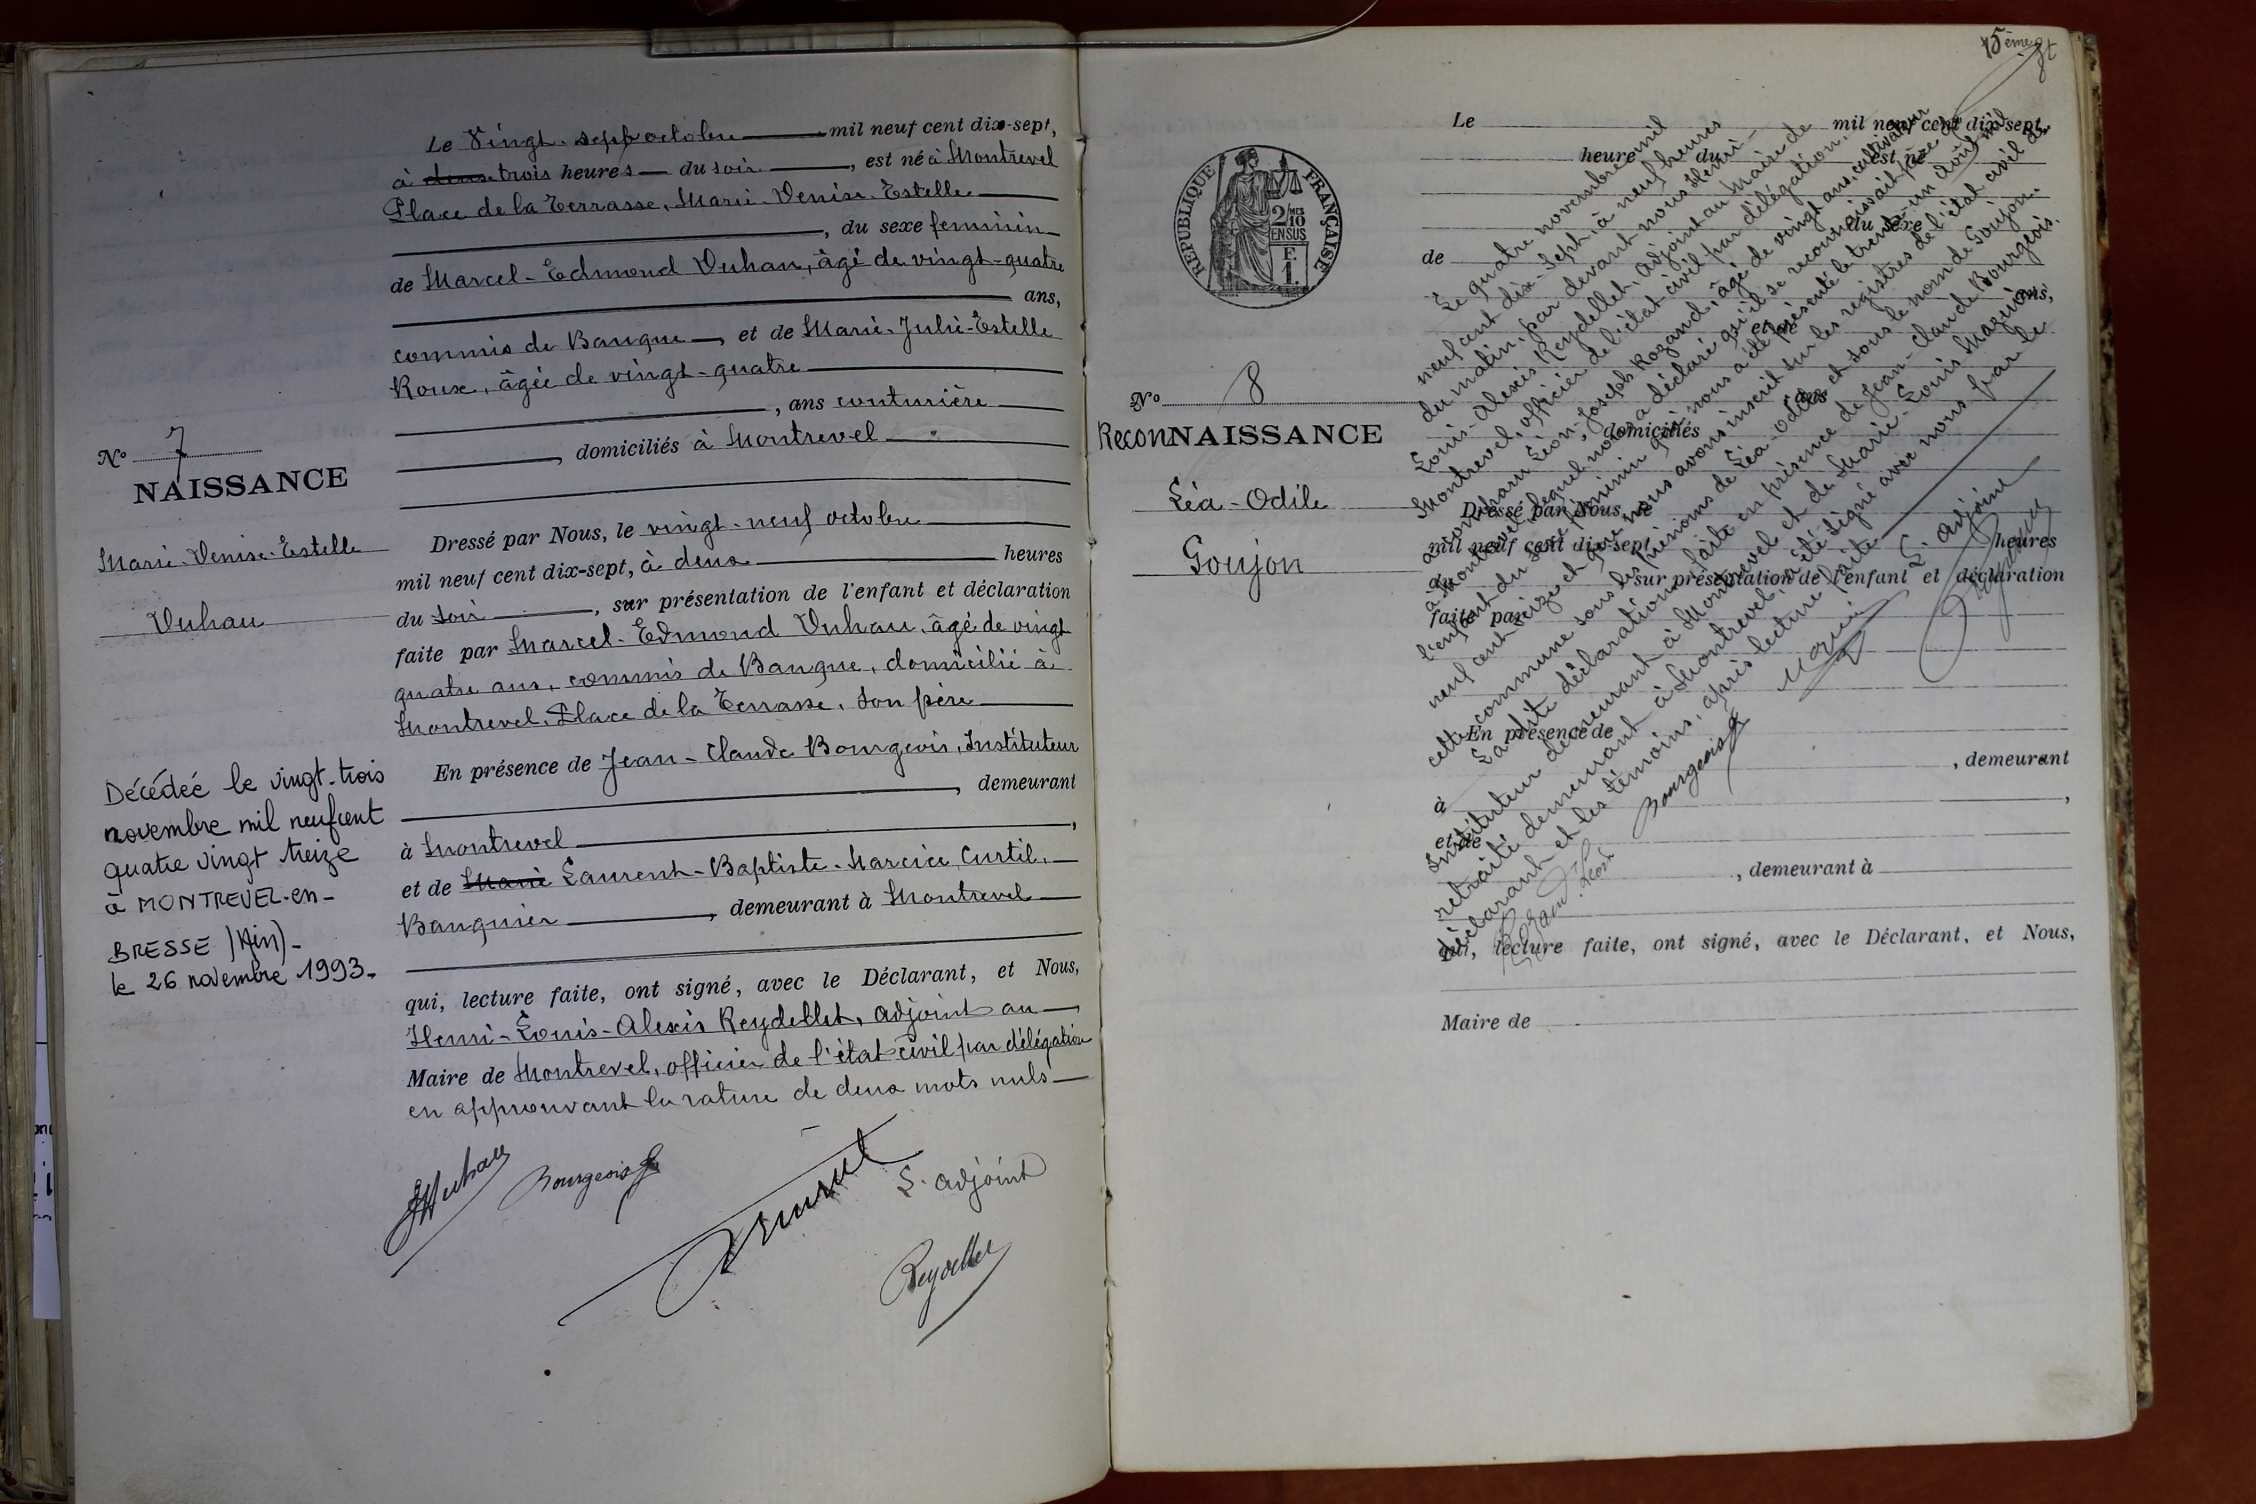 Le Vingt-sept octobre mil neuf cent dix-sept,
à deux trois heures du soir, est né à Montrevel
Place de la Terrasse, Marie-Denise-Estelle
, du sexe feminin
de Marcel-Edmond Vuhau, âgé de vingt-quatre
ans,
commis de Banque, et de Marie-Julie-Estelle
Roux, âgée de vingt-quatre
, ans couturière
, domiciliés à Montrevel
Dressé par Nous, le vingt-neuf octobre
mil neuf cent dix-sept, à deux heures
du soir, sur présentation de l'enfant et déclaration
faite par Marcel-Edmond Vuhau, âgé de vingt
quatre ans, commis de Banque, domicilié à
Montrevel, Place de la Terrasse, son père
En présence de Jean-Claude Bourgeois, Instituteur
, demeurant
à Montrevel,
et de Marie Laurent-Baptiste-Narcice Curtil,
Banquier, demeurant à Montrevel
qui, lecture faite, ont signé, avec le Déclarant, et Nous,
Henri-Louis-Alexis Reydellet, adjoint au
Maire de Montrevel, officier de l'état civil par délégation
en approuvant la rature de deux mots nuls
Vuhau
Bourgeois
L'adjoint
Reydellet
N° 7
NAISSANCE
Marie-Denise-Estelle
Vuhau
Décédée le vingt-trois
novembre mil neufcent
quatre vingt treize
à MONTREVEL-en-
BRESSE (Ain)-
le 26 novembre 1993.
15ème
RÉPUBLIQUE FRANÇAISE
2/10
EN SUS
F.
1.
N° 8
ReconNAISSANCE
Léa-Odile
Goujon
Le mil neuf cent dix-sept,
heure du est né
du sexe
de
ans,
et de
, ans
domiciliés
Dressé par Nous, le
mil neuf cent dix-sept heures
du sur présentation de l'enfant et déclaration
faite par
En présence de
, demeurant
à ,
et de
, demeurant à
qui, lecture faite, ont signé, avec le Déclarant, et Nous,
Maire de
Le quatre novembre mil
neuf cent dix-sept, à neuf heures
du matin, par devant nous Henri-
Louis-Alexis Reydellet, Adjoint au Maire de
Montrevel, officier de l'état civil par délégation,
a comparu Léon-Joseph Rozand, âgé de vingt ans, cultivateur
à Montrevel, lequel nous a déclaré qu'il se reconnaissait père de
l'enfant du sexe féminin qui nous a été présenté le trente-un août mil
neuf cent seize et que nous avons inscrit sur les registres de l'état civil de
cette commune sous les prénoms de Léa-Odile et sous le nom de Goujon.
La dite déclaration faite en présence de Jean-Claude Bourgeois,
Instituteur demeurant à Montrevel et de Marie-Louis Mazuir
retraité demeurant à Montrevel, a été signé avec nous par le
déclarant et les témoins, après lecture faite
L'adjoint
Mazuir
Bourgeois
Rozand Léon